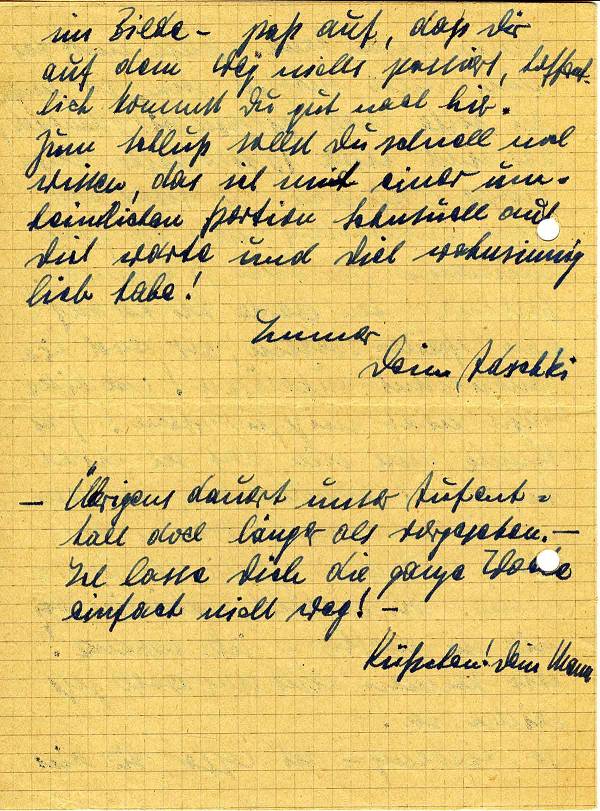 im Bilde – paß auf, daß Dir
auf dem Weg nichts passiert, hoffent-
lich kommst Du gut nach hier.
Zum Schluß sollst Du schnell noch
wissen, das ich mit einer un-
heimlichen Portion Sehnsucht auf
Dich warte und Dich wahnsinnig
lieb habe!
Immer
Dein
– Übrigens dauert unser Aufent-
halt doch länger als vorgesehen. –
Ich lasse Dich die ganze Woche
einfach nicht weg! –
Küßchen! Dein Mann